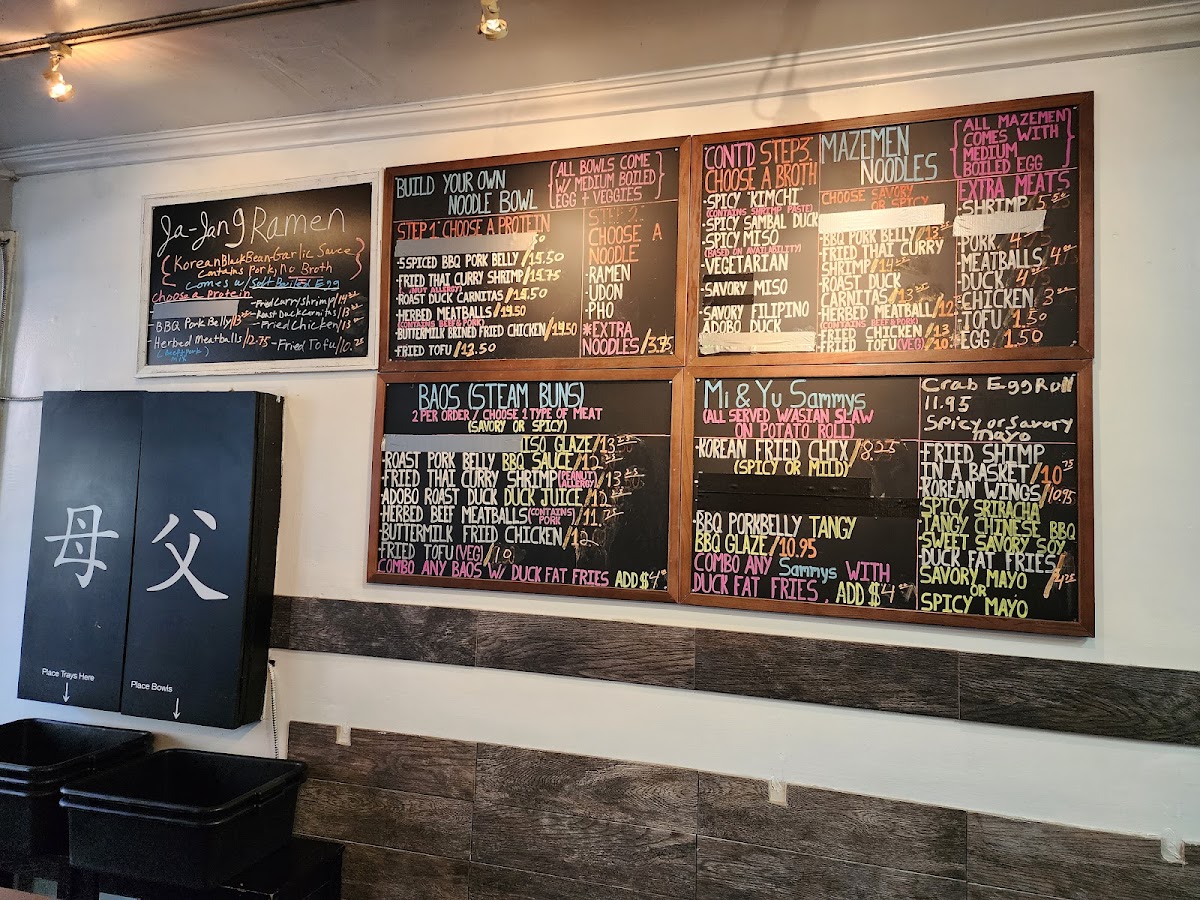 Ja-Jang Ramen
Korean Black Bean-Garlic Sauce
Contains Pork, No Broth
Comes w/ Soft Boiled Egg
Choose a Protein
-Fried Curry Shrimp/14
-Roast Duck Carnitas/13
-BBQ Pork Belly/13
-Fried Chicken/13
-Herbed Meatballs/12.75
-Fried Tofu/10.75
BUILD YOUR OWN
NOODLE BOWL
ALL BOWLS COME
W/ MEDIUM BOILED
EGG + VEGGIES
STEP 1: CHOOSE A PROTEIN
5 SPICED BBQ PORK BELLY/15.50
FRIED THAI CURRY SHRIMP/15.75
(NUT ALLERGY)
ROAST DUCK CARNITAS/15.50
HERBED MEATBALLS/14.50
(CONTAINS BEEF & PORK)
BUTTERMILK BRINED FRIED CHICKEN/14.50
FRIED TOFU/12.50
STEP 2:
CHOOSE A
NOODLE
-RAMEN
-UDON
-PHO
*EXTRA
NOODLES/3.75
CONTD STEP3.
CHOOSE A BROTH
-SPICY "KIMCHI"
(CONTAINS SHRIMP PASTE)
-SPICY SAMBAL DUCK
-SPICY MISO
(BASED ON AVAILABILITY)
-VEGETARIAN
-SAVORY MISO
-SAVORY FILIPINO
ADOBO DUCK
MAZEMEN
NOODLES
CHOOSE SAVORY
OR SPICY
-BBQ PORK BELLY/13
-FRIED THAI CURRY
SHRIMP/14
-ROAST DUCK
CARNITAS/13
-HERBED MEATBALL/12
(CONTAINS BEEF & PORK)
-FRIED CHICKEN/13
-FRIED TOFU(VEG)/10
ALL MAZEMEN
COMES WITH
MEDIUM
BOILED EGG
EXTRA MEATS
-SHRIMP/5
-PORK 4
-MEATBALLS/4
-DUCK 4
-CHICKEN 3
-TOFU 1.50
-EGG 1.50
BAOS (STEAM BUNS)
2 PER ORDER / CHOOSE 1 TYPE OF MEAT
(SAVORY OR SPICY)
ISO GLAZE/13
-ROAST PORK BELLY BBQ SAUCE/12
-FRIED THAI CURRY SHRIMP(PEANUT ALLERGY)/13
-ADOBO ROAST DUCK DUCK JUICE/12
-HERBED BEEF MEATBALLS(CONTAINS PORK)/11.75
-BUTTERMILK FRIED CHICKEN/12
-FRIED TOFU(VEG)/10
COMBO ANY BAOS W/ DUCK FAT FRIES ADD $4
Mi & Yu Sammys
(ALL SERVED W/ASIAN SLAW
ON POTATO ROLL)
-KOREAN FRIED CHIX/8.25
(SPICY OR MILD)
-BBQ PORKBELLY TANGY
BBQ GLAZE/10.95
COMBO ANY Sammys WITH
DUCK FAT FRIES, ADD $4
Crab Egg Roll
11.95
Spicy or Savory
mayo
FRIED SHIMP
IN A BASKET/10
KOREAN WINGS/10.95
SPICY SRIRACHA
TANGY CHINESE BBQ
SWEET SAVORY SOY
DUCK FAT FRIES
SAVORY MAYO
OR
SPICY MAYO
母 父
Place Trays Here
Place Bowls